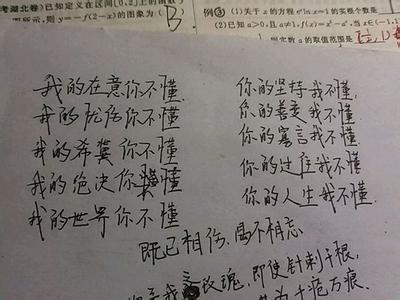 考湖北卷)已知定义在区间[0,2]上的函数
图所示,则y=-f(2-x)的图象为( B
例③(1)关于x的方程eˣlnx=1的实根个数是
(2)已知a>0,且a≠1,f(x)=x²-aˣ,当x∈(-1,1
则实数a的取值范围是
我的在意你不懂
我的 你不懂
我的希冀你不懂
我的绝决你懂
我的世界你不懂
你的坚持我不懂,
你的善变我不懂
你的寡言我不懂
你的过往我不懂
你的人生我不懂.
既已相伤,曷不相忘
我 玫瑰,即使针刺千根,
千疮万痕.